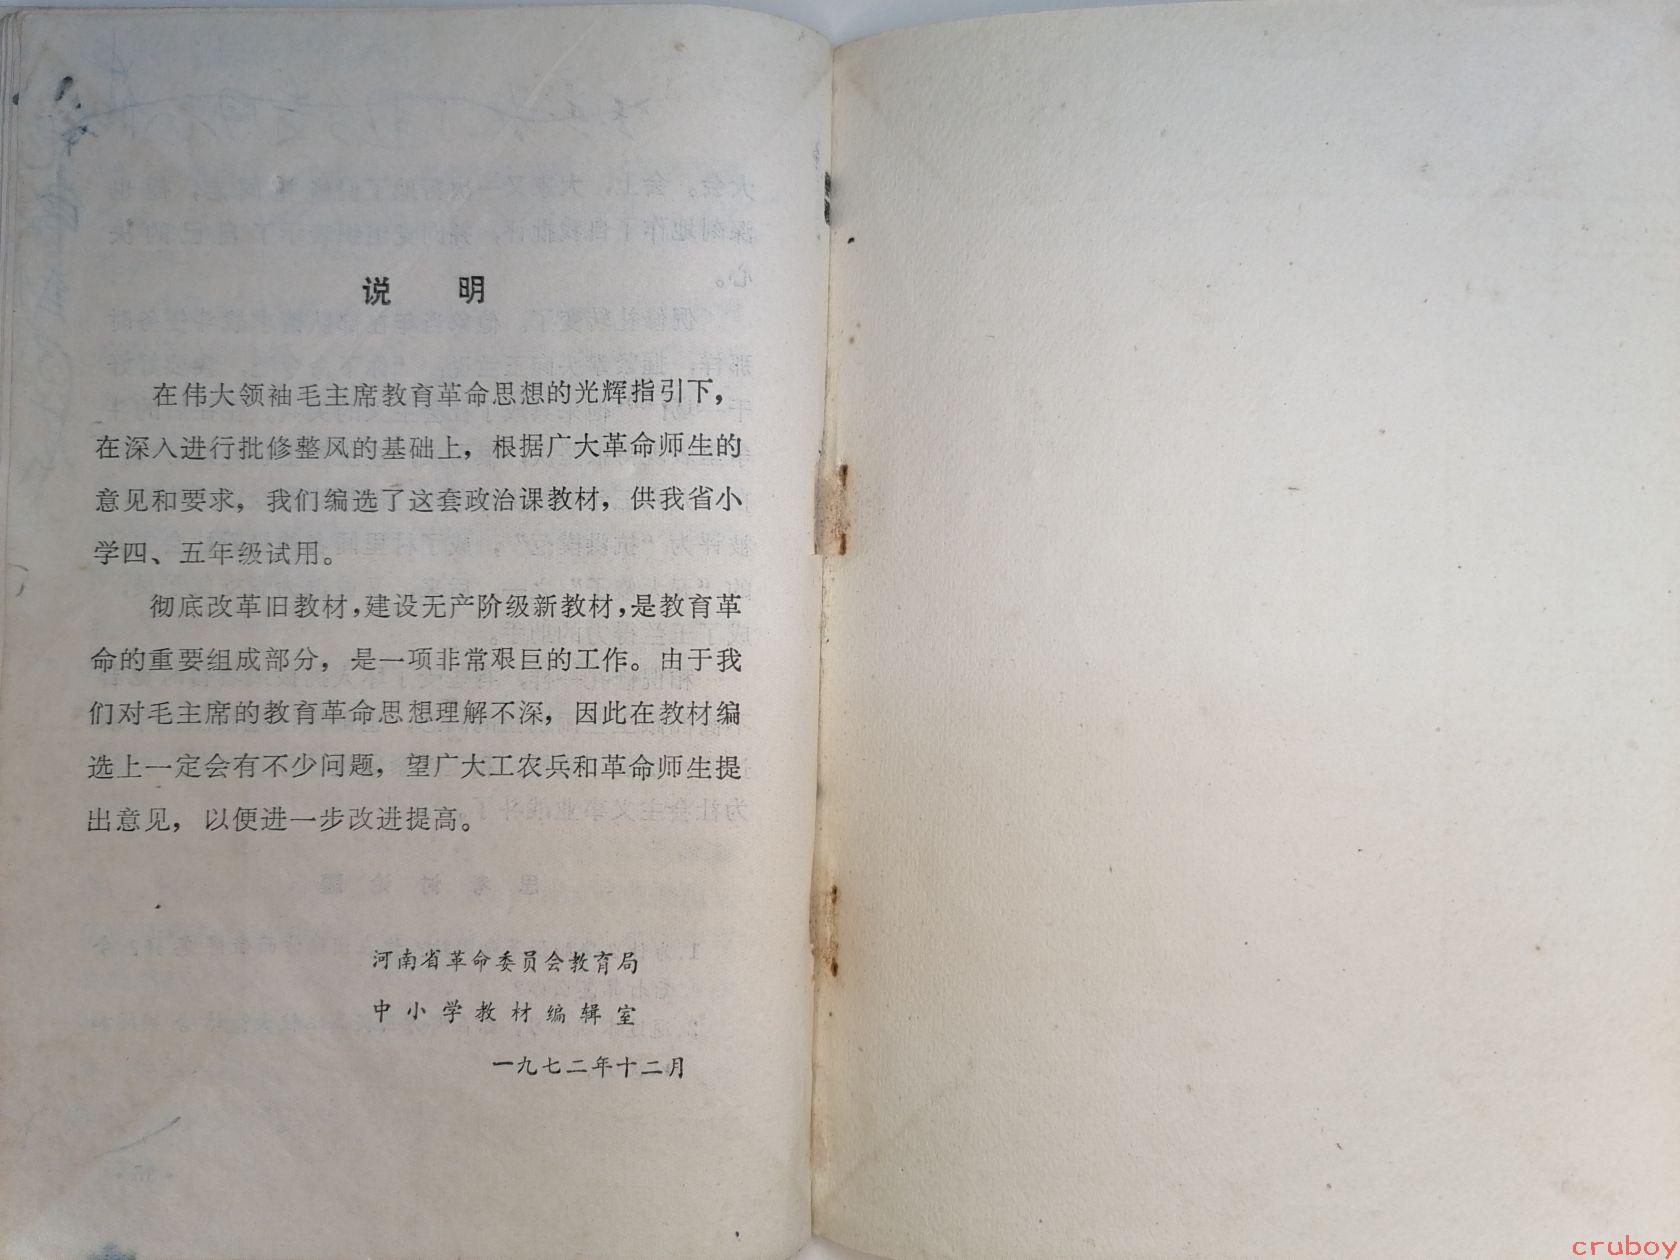 说 明
在伟大领袖毛主席教育革命思想的光辉指引下，
在深入进行批修整风的基础上，根据广大革命师生的
意见和要求，我们编选了这套政治课教材，供我省小
学四、五年级试用。
彻底改革旧教材，建设无产阶级新教材，是教育革
命的重要组成部分，是一项非常艰巨的工作。由于我
们对毛主席的教育革命思想理解不深，因此在教材编
选上一定会有不少问题，望广大工农兵和革命师生提
出意见，以便进一步改进提高。
河南省革命委员会教育局
中小学教材编辑室
一九七二年十二月
cruboy